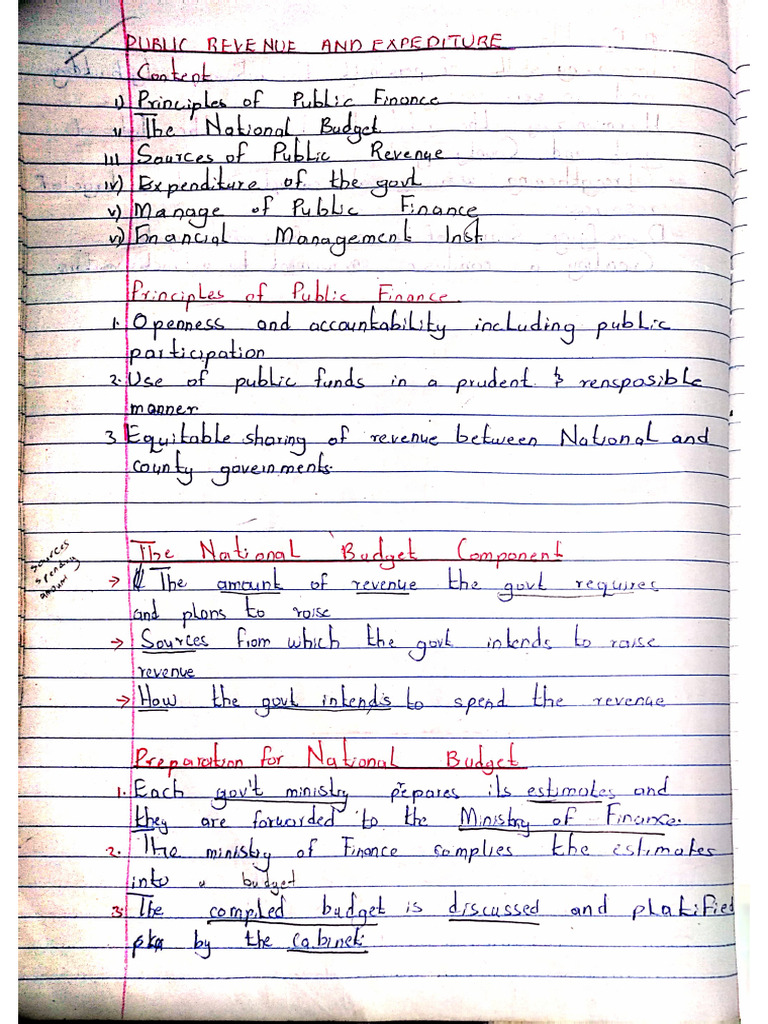 PUBLIC REVENUE AND EXPEDITURE
Content
i) Principles of Public Finance
ii The National Budget
iii Sources of Public Revenue
iv) Expenditure of the govt
v) Manage of Public Finance
vi) Financial Management Inst.
Principles of Public Finance
1. Openness and accountability including public
participation
2. Use of public funds in a prudent & rensposible
manner
3 Equitable sharing of revenue between National and
county governments.
The National Budget Component
sources
spending
amount
→ The amount of revenue the govt requires
and plans to raise
→ Sources from which the govt intends to raise
revenue
→ How the govt intends to spend the revenue
Preparation for National Budget
1. Each gov't ministry prepares its estimates and
they are forwarded to the Ministry of Finance.
2. The ministry of Finance complies the estimates
into a budget
3. The compiled budget is discussed and platified
by the cabinet